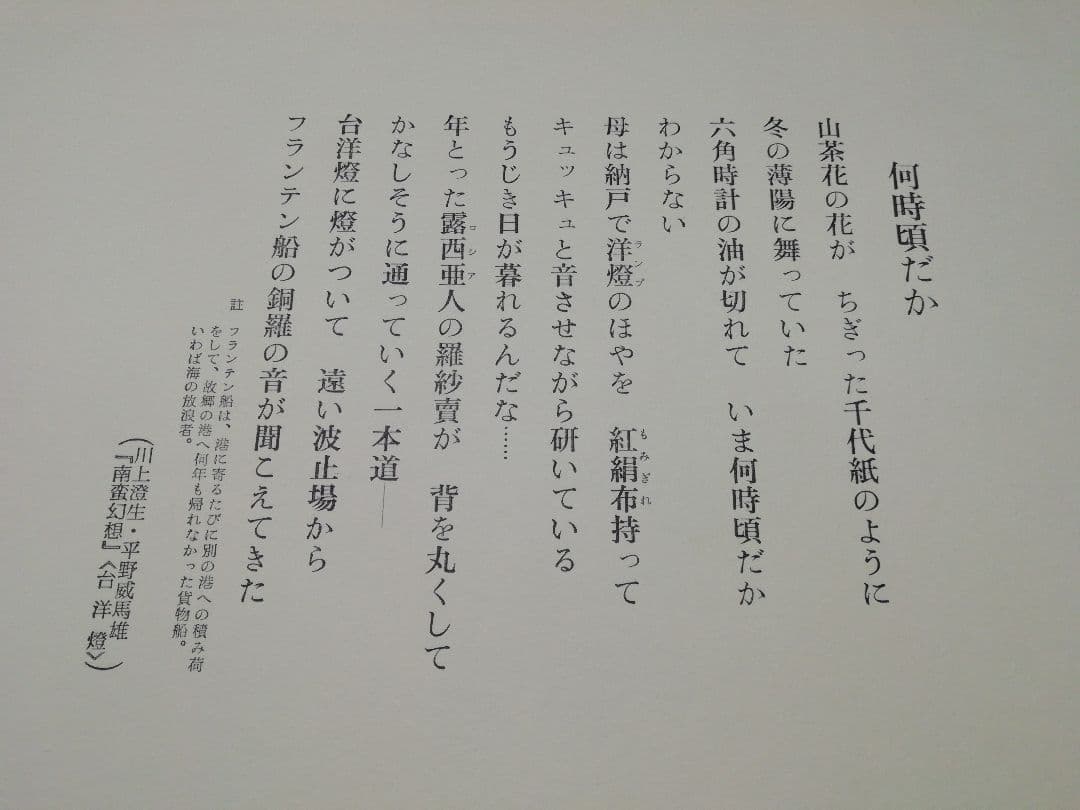 何時頃だか
山茶花の花が　ちぎった千代紙のように
冬の薄陽に舞っていた
六角時計の油が切れて　いま何時頃だか
わからない
母は納戸で洋燈のほやを　紅絹布持って
ランプ
もみぎれ
キュッキュと音させながら研いている
もうじき日が暮れるんだな……
年とった露西亜人の羅紗賣が　背を丸くして
ロシア
かなしそうに通っていく一本道――
台洋燈に燈がついて　遠い波止場から
フランテン船の銅羅の音が聞こえてきた
註　フランテン船は、港に寄るたびに別の港への積み荷
をして、故郷の港へ何年も帰れなかった貨物船。
いわば海の放浪者。
（川上澄生・平野威馬雄
『南蛮幻想』〈台洋燈〉）